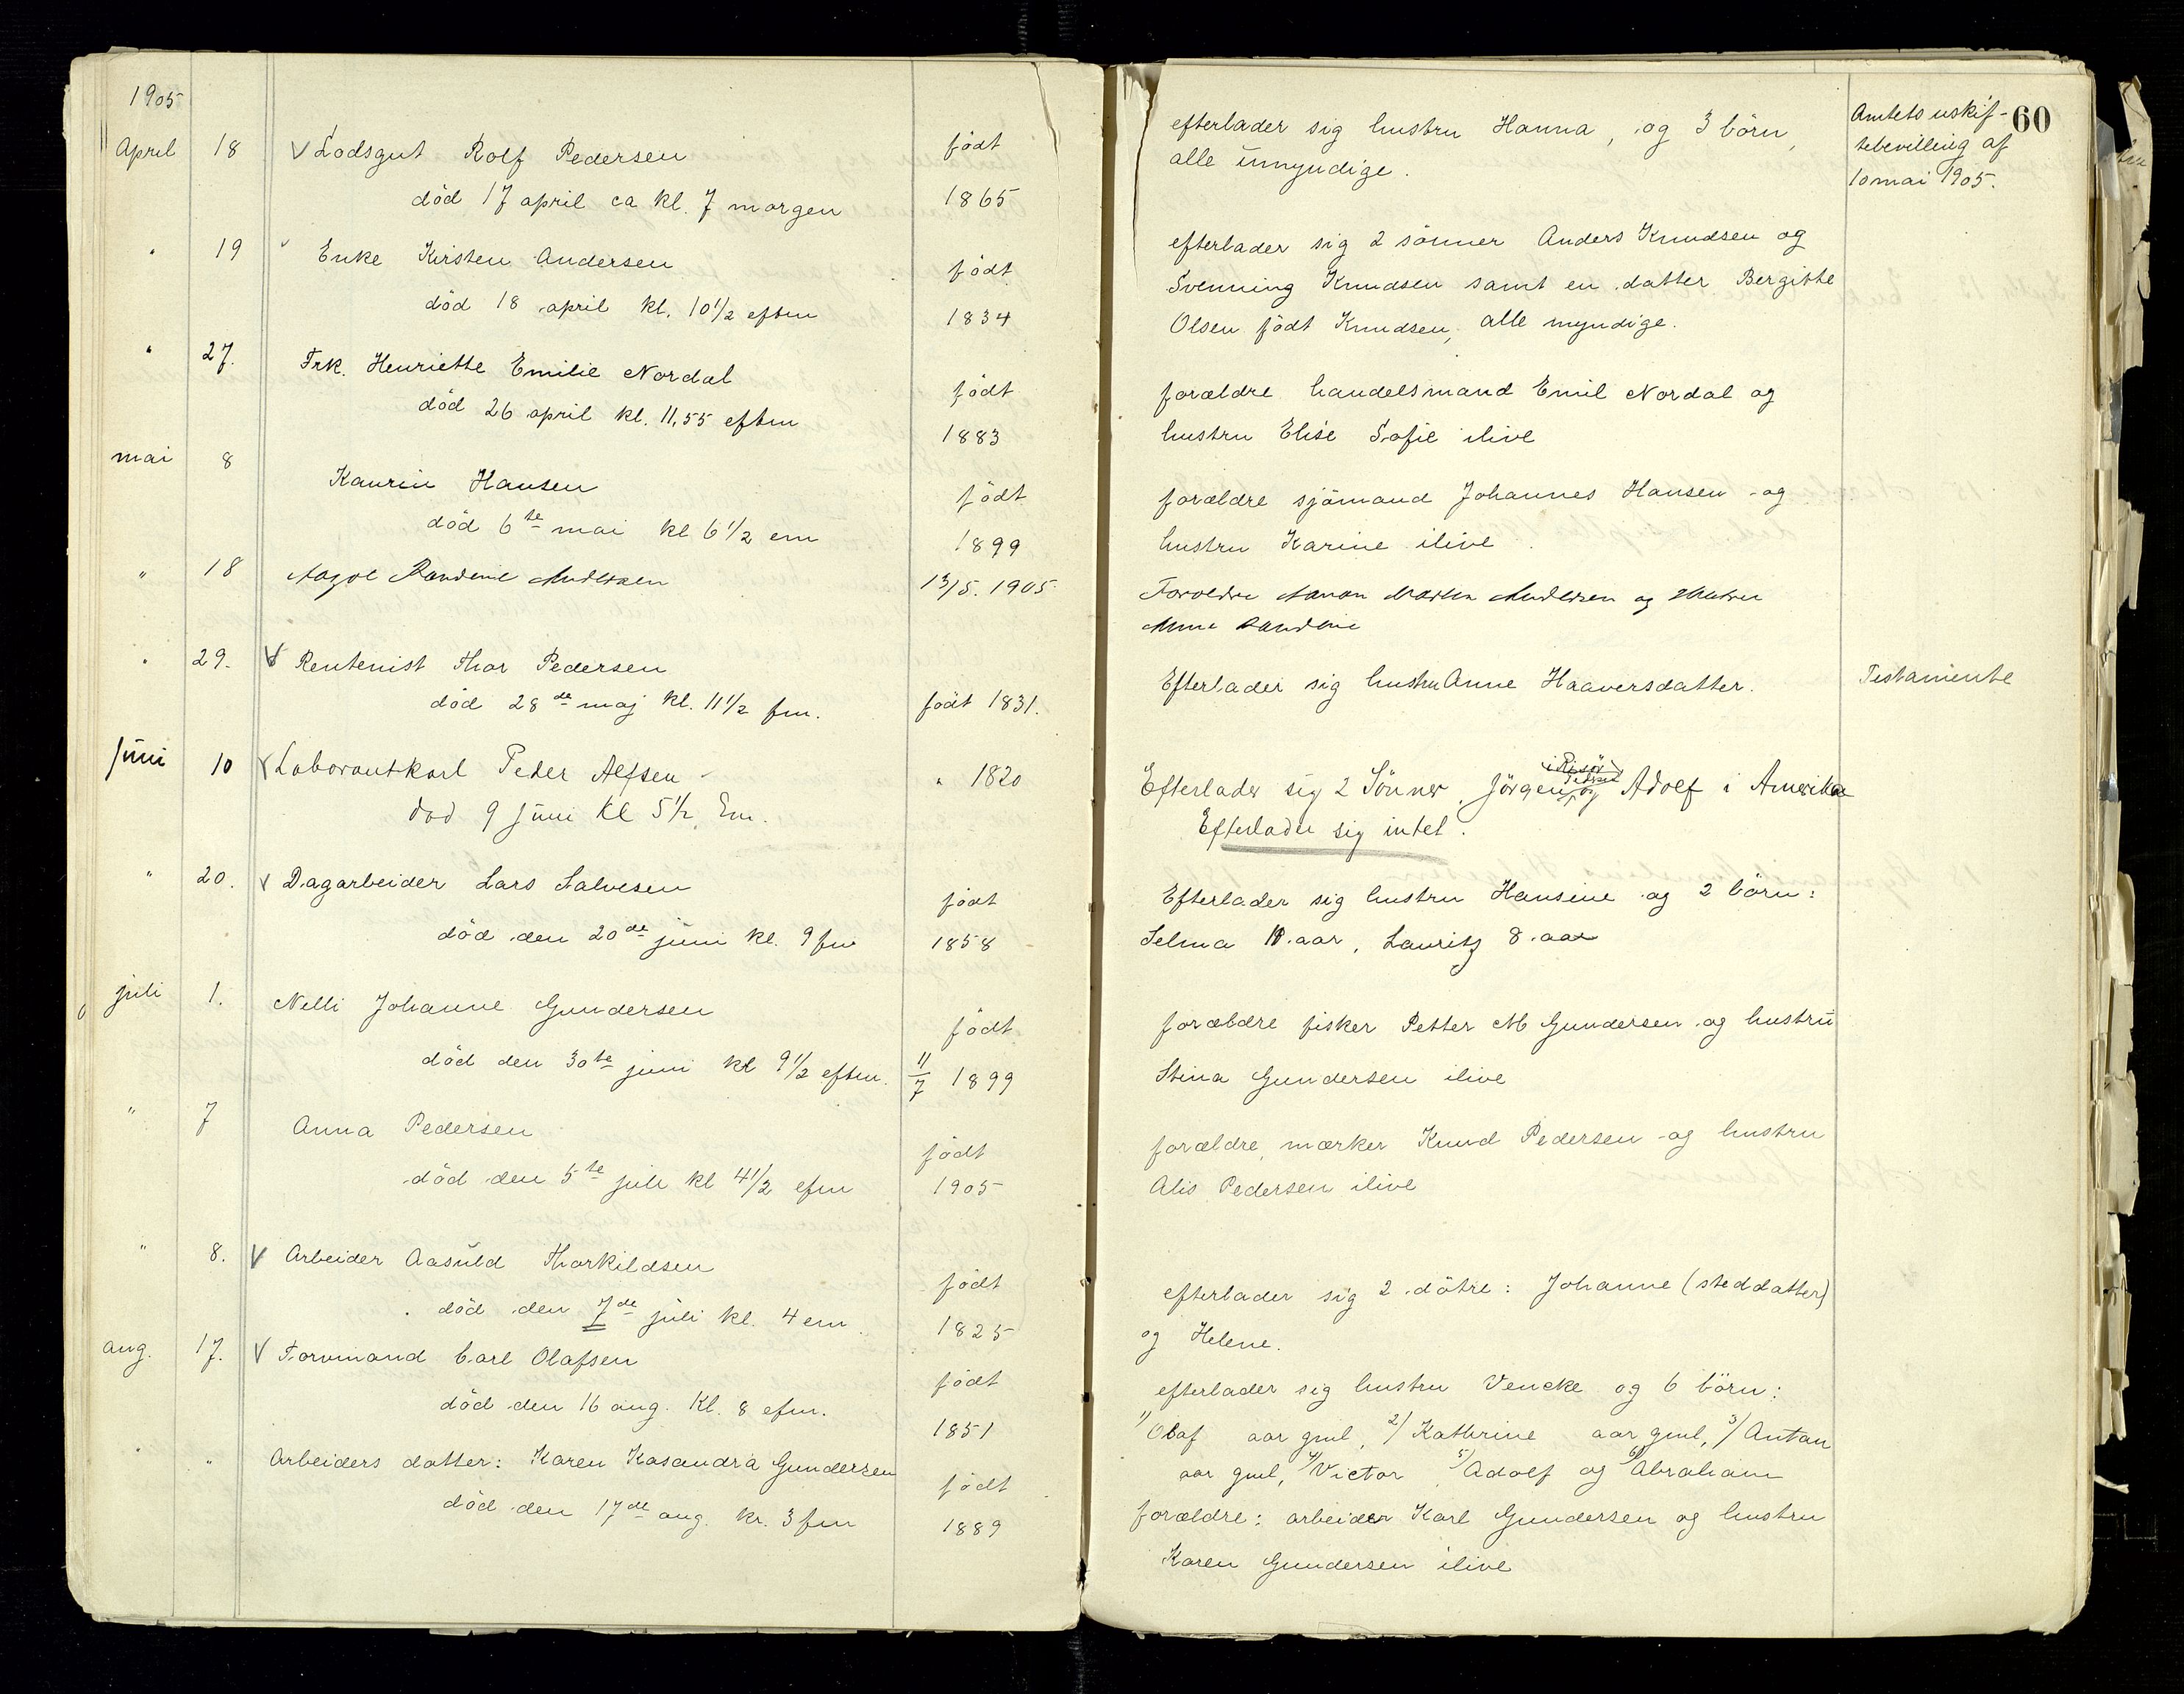 1905
April 18 Lodsgut Rolf Pedersen født
død 17 april ca kl. 7 morgen 1865
" 19 Enke Kirsten Andersen født
død 18 april kl. 10 1/2 eftm 1834
" 27. Frk. Henriette Emilie Nordal født
død 26 april kl. 11,55 eftm 1883
mai 8 Kaurin Hansen født
død 6te mai kl 6 1/2 em 1899
" 18 Aagot Randine Andersen 13/5. 1905
" 29. Rentenist Thor Pedersen
død 28de maj kl. 11 1/2 fm. født 1831.
Juni 10 Laborantkarl Peder Alfsen " 1820
död 9 Juni Kl 5 1/2 Em.
" 20. Dagarbeider Lars Salvesen født
død den 20de juni kl. 9 fm 1858
juli 1. Nelli Johanne Gundersen født
død den 30te juni kl 9 1/2 eftm. 11/7 1899
" 7 Anna Pedersen født
død den 5te juli kl 4 1/2 efm 1905
" 8. Arbeider Aasuld Thorkildsen født
død den 7de juli kl. 4 em. 1825
aug. 17. Formand Carl Olafsen født
død den 16 aug. Kl. 8 efm. 1851
" " Arbeiders datter: Karen Kasandra Gundersen født
død den 17de aug. kr. 3 fm 1889
60
efterlader sig hustru Hanna, og 3 börn,
alle umyndige.
Amtets uskif-
tebevilling af
10 mai 1905.
efterlader sig 2 sönner Anders Knudsen og
Svenning Knudsen samt en datter Bergitte
Olsen født Knudsen, alle myndige.
forældre handelsmand Emil Nordal og
hustru Elise Sofie ilive
forældre sjömand Johannes Hansen og
hustru Karine ilive
Foreldre Anton Martin Andersen og Hustru
Anne Randine
Efterlader sig hustru Anne Haaversdatter. Testamente
i Risör
Efterlader sig 2 Sönner, Jörgen og Adolf i Amerika
Efterlader sig intet.
Efterlader sig hustru Hansine og 2 börn:
Selma 11 aar, Lauritz 8 aar
forældre fisker Petter M Gundersen og hustru
Stina Gundersen ilive
forældre, mærker Knud Pedersen og hustru
Alis Pedersen ilive
efterlader sig 2 dötre: Johanne (steddatter)
og Helene.
efterlader sig hustru Vencke og 6 börn:
1/ Olaf aar gml, 2/ Kathrine aar gml, 3/ Antan
aar gml, 4/ Victor 5/ Adolf og 6/ Abraham
forældre: arbeider Karl Gundersen og hustru
Karen Gundersen ilive